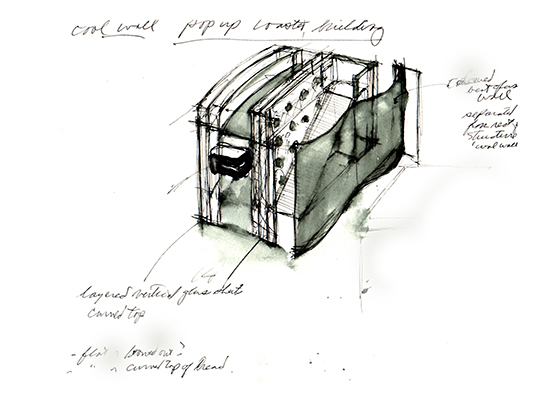 cool wall pop up toaster building
layered
bent glass
wall
separated
from rest of
structure
'cool wall'
layered vertical glass sheets
curved top
- flat
- " " curved top of bread.